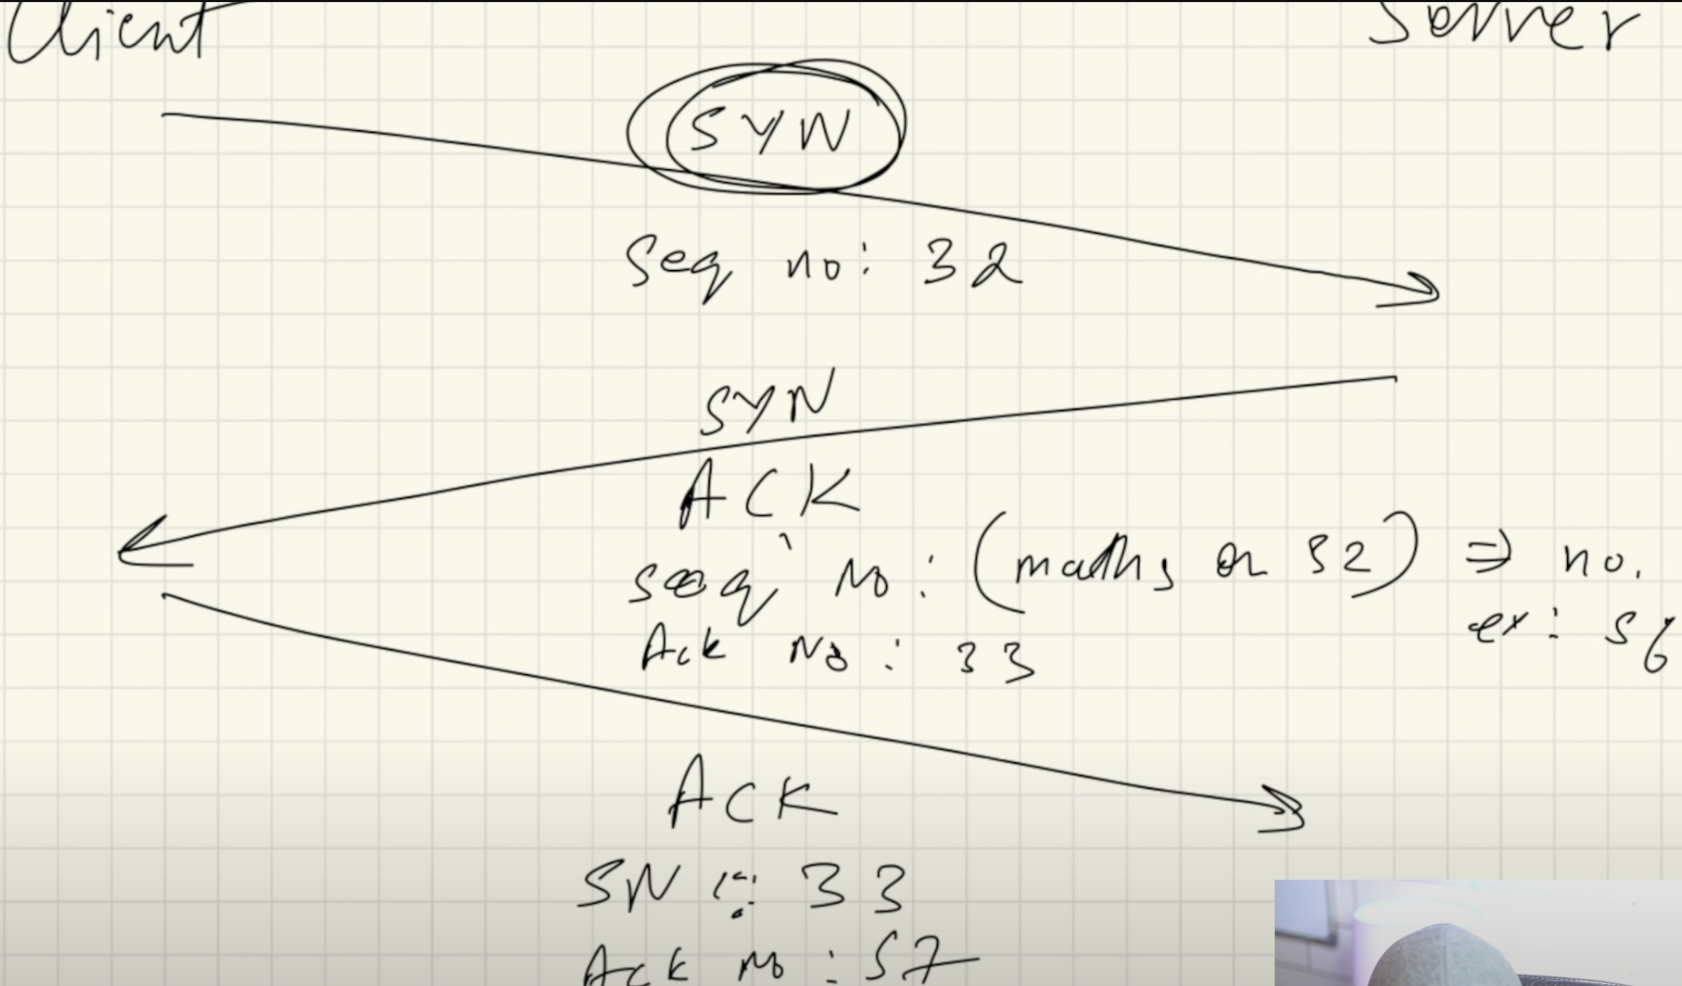 Client
Server
SYN
Seq no: 32
SYN
ACK
seq No: (maths on 32) ⇒ no.
ex: 56
Ack No: 33
ACK
SN : 33
Ack No : 57